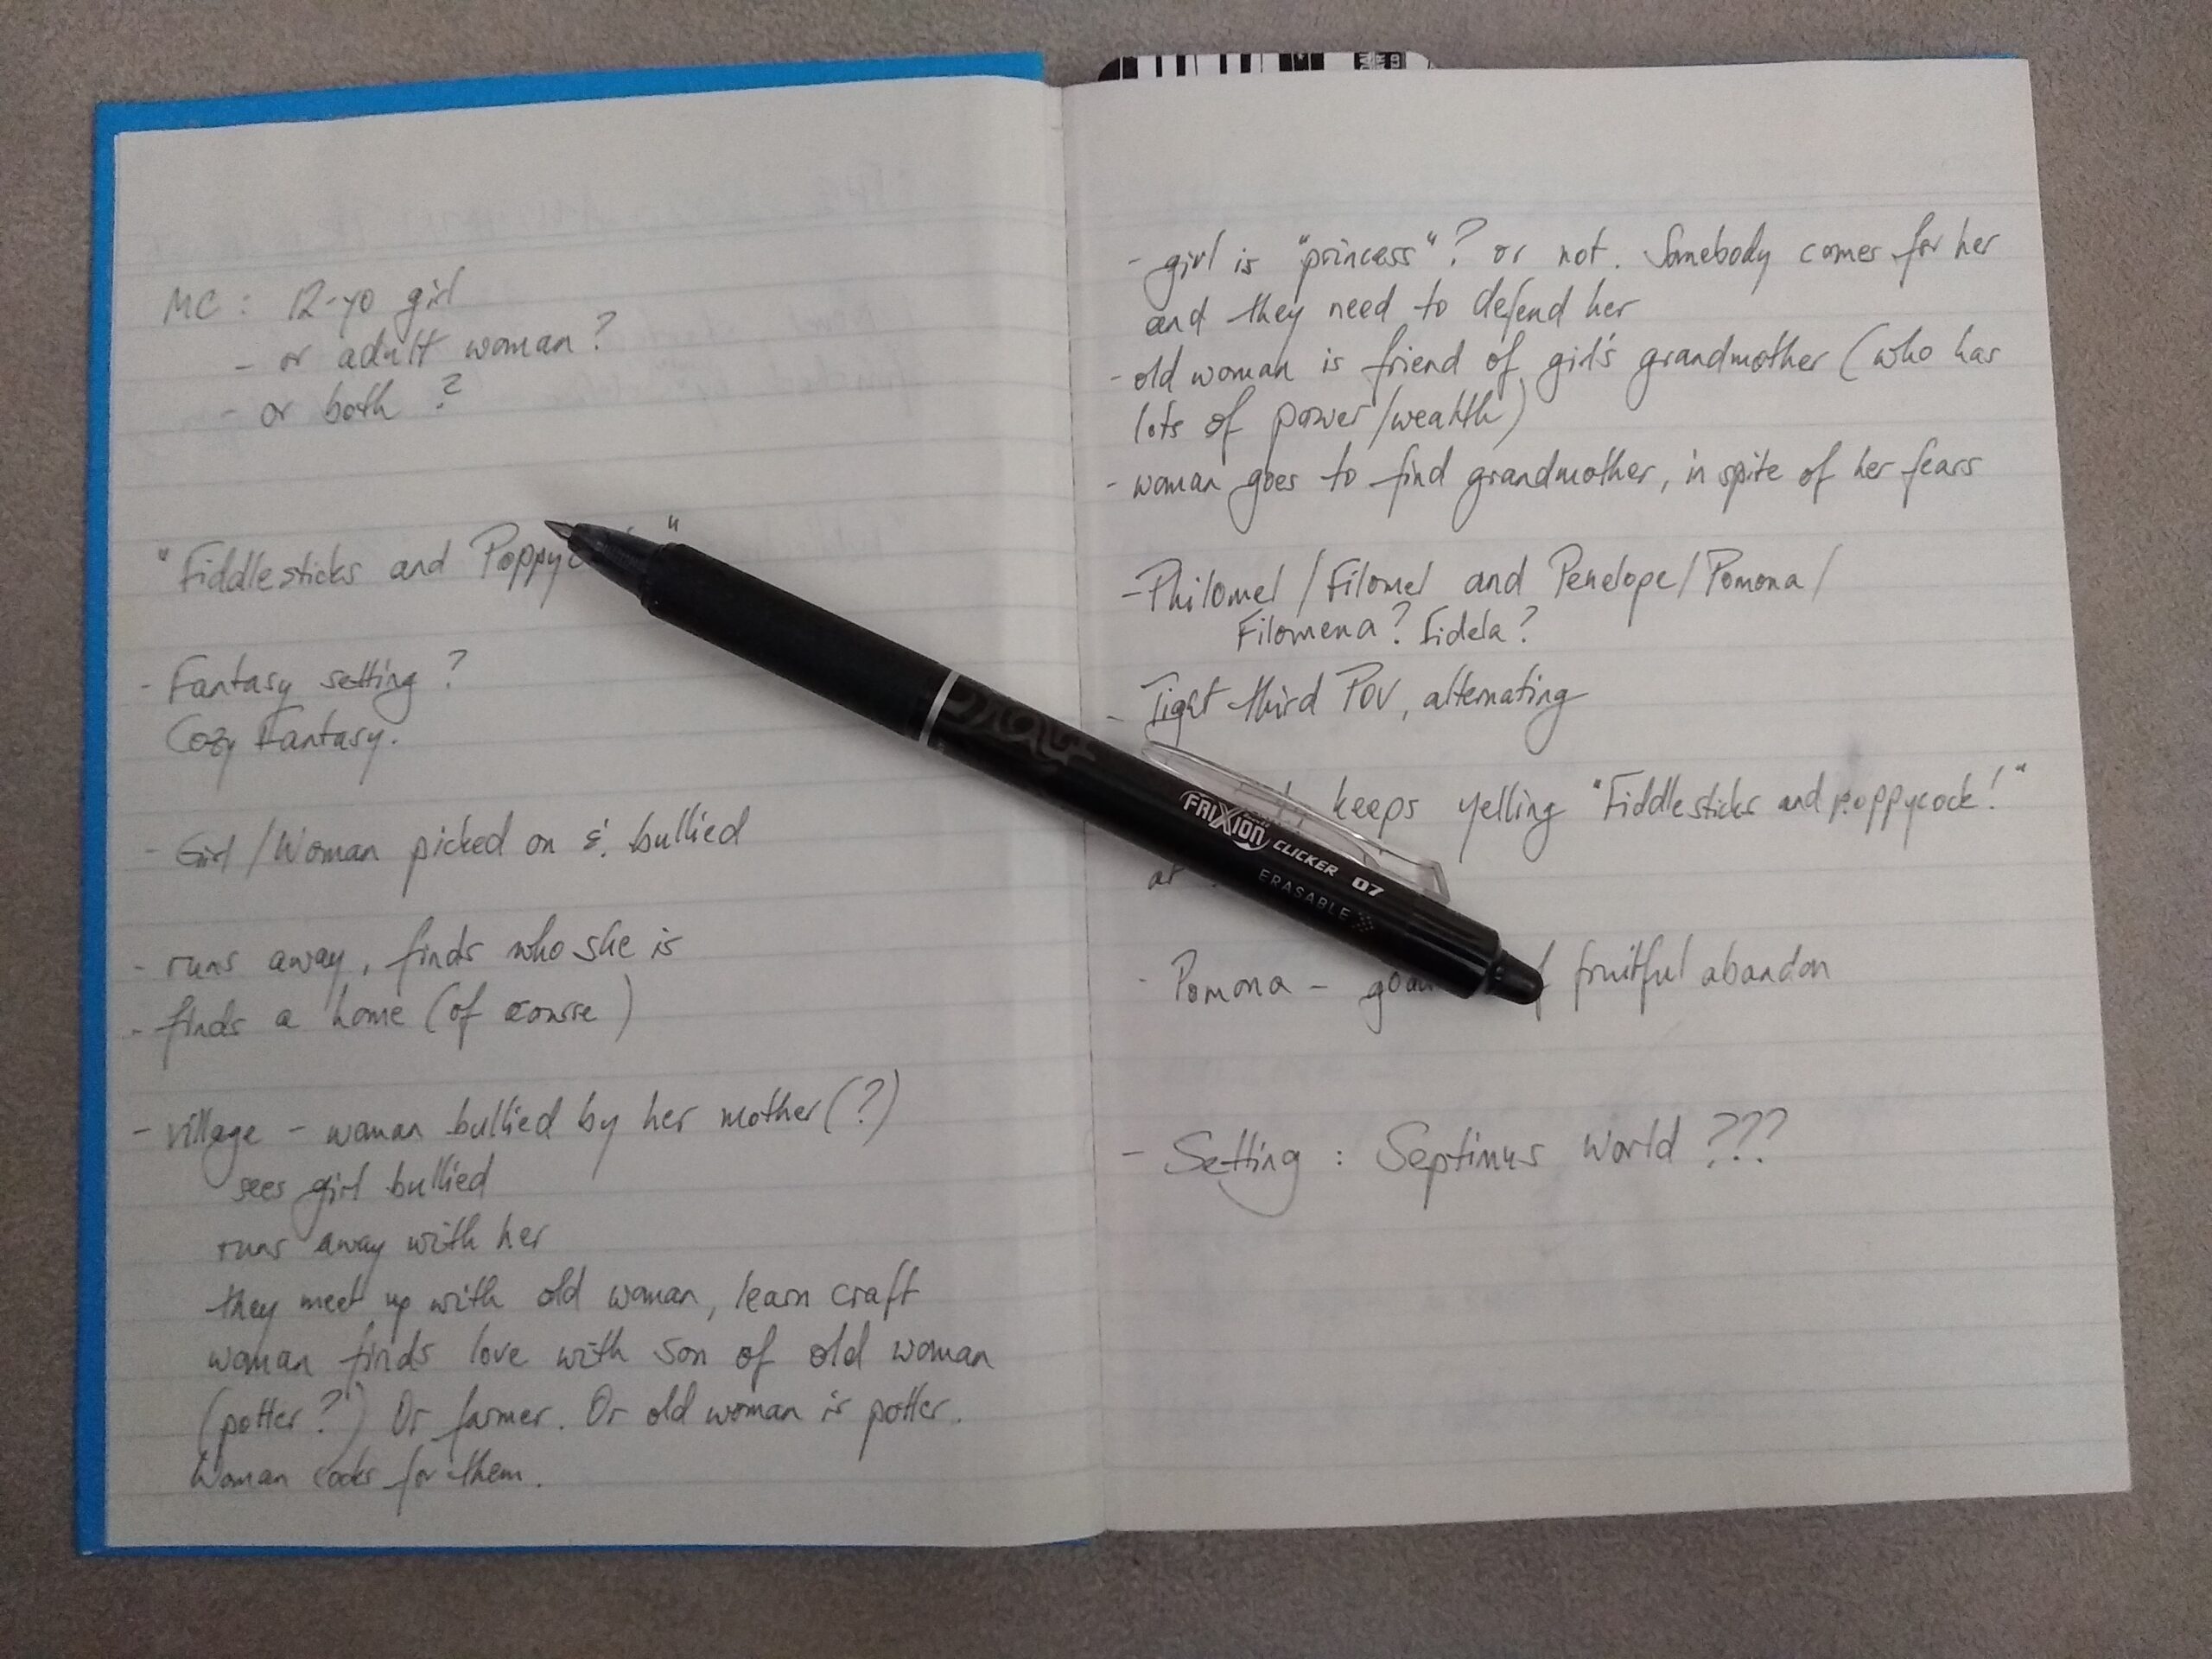 MC: 12-yo girl
- or adult woman?
- or both?
"Fiddlesticks and Poppyc "
- Fantasy setting?
Cozy Fantasy.
- Girl/Woman picked on &. bullied
- runs away, finds who she is
- finds a home (of course)
- village - woman bullied by her mother (?)
sees girl bullied
runs away with her
they meet up with old woman, learn craft
woman finds love with son of old woman
(potter?) Or farmer. Or old woman is potter.
Woman cooks for them.
- girl is "princess"? or not. Somebody comes for her
and they need to defend her
- old woman is friend of girl's grandmother (who has
lots of power/wealth)
- woman goes to find grandmother, in spite of her fears
- Philomel/Filomel and Penelope/Pomona/
Filomena? Fidela?
- Tight third POV, alternating
keeps yelling "Fiddlesticks and poppycock!"
at
- Pomona - fruitful abandon
- Setting: Septimus World ???
FRIXION CLICKER 07
ERASABLE